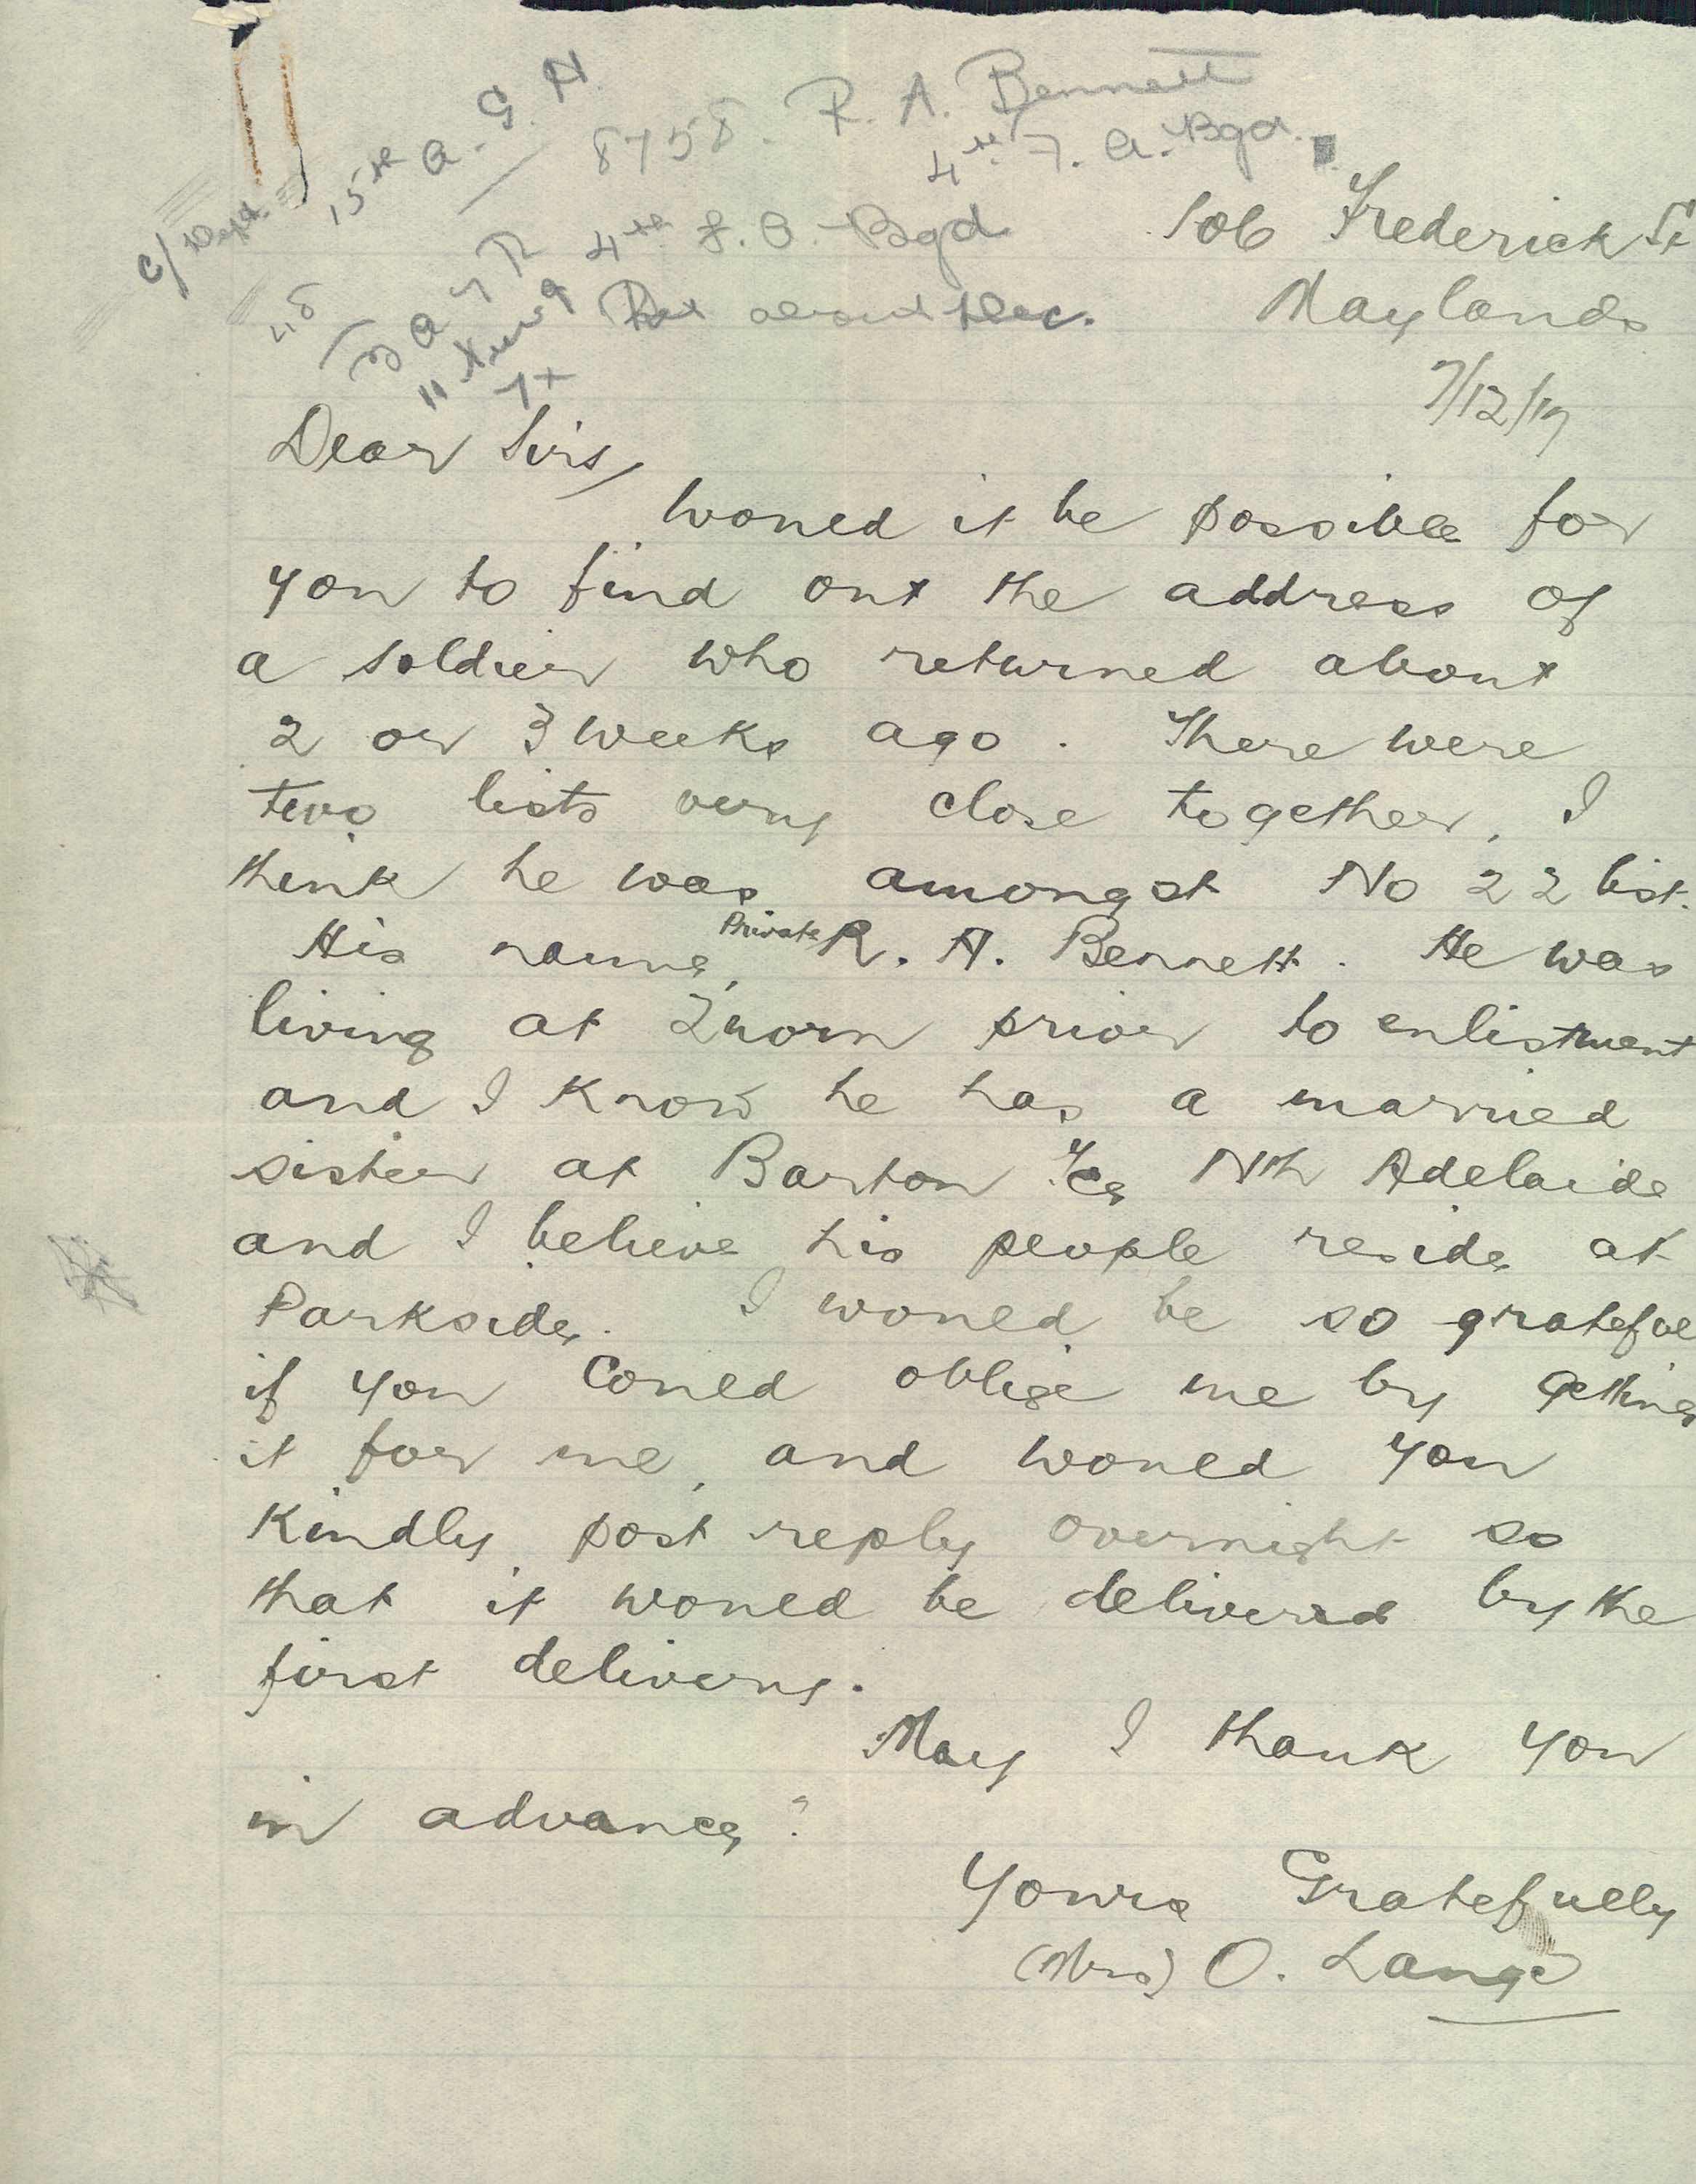 15th A. G. H
8758. R. A. Bennett
4th F. A. Bgd.
C/ Dept.
4th F. A. Bgd
106 Frederick St
Maylands
7/12/19
Dear Sirs,
Would it be possible for
you to find out the address of
a soldier who returned about
2 or 3 weeks ago. There were
two lists very close together, I
think he was amongst No 22 list.
His name, Private R. A. Bennett. He was
living at Quorn prior to enlistment
and I know he has a married
sister at Barton Tce Nth Adelaide
and I believe his people reside at
Parkside. I would be so grateful
if you could oblige me by getting
it for me, and would you
kindly post reply overnight so
that it would be delivered by the
first delivery.
May I thank you
in advance?
Yours Gratefully
(Mrs) O. Lange